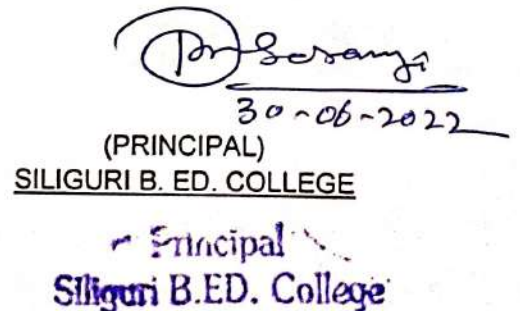 30-06-2022
(PRINCIPAL)
SILIGURI B. ED. COLLEGE
Principal
Siliguri B.ED. College